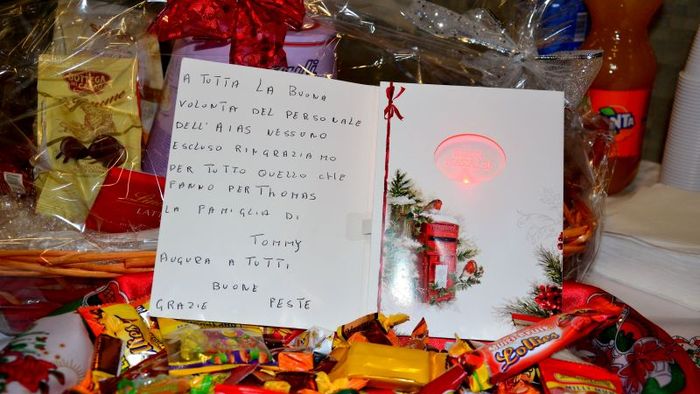 A TUTTA LA BUONA
VOLONTA DEL PERSONALE
DELL'AIAS NESSUNO
ESCLUSO RINGRAZIAMO
PER TUTTO QUELLO CHE
FANNO PER THOMAS
LA FAMIGLIA DI
TOMMY
AUGURA A TUTTI,
BUONE
GRAZIE FESTE
BOTTEGA
Lollies